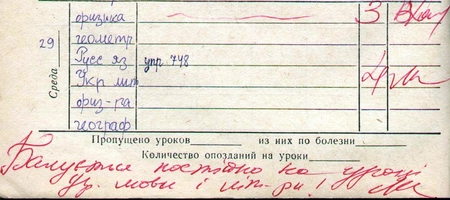 физика 3
29 геометр
Среда
Русс яз упр 748
Укр лит 4
физ-ра
географ
Пропущено уроков из них по болезни
Количество опозданий на уроки
Балується постійно на уроці
ук. мови і літ-ри!